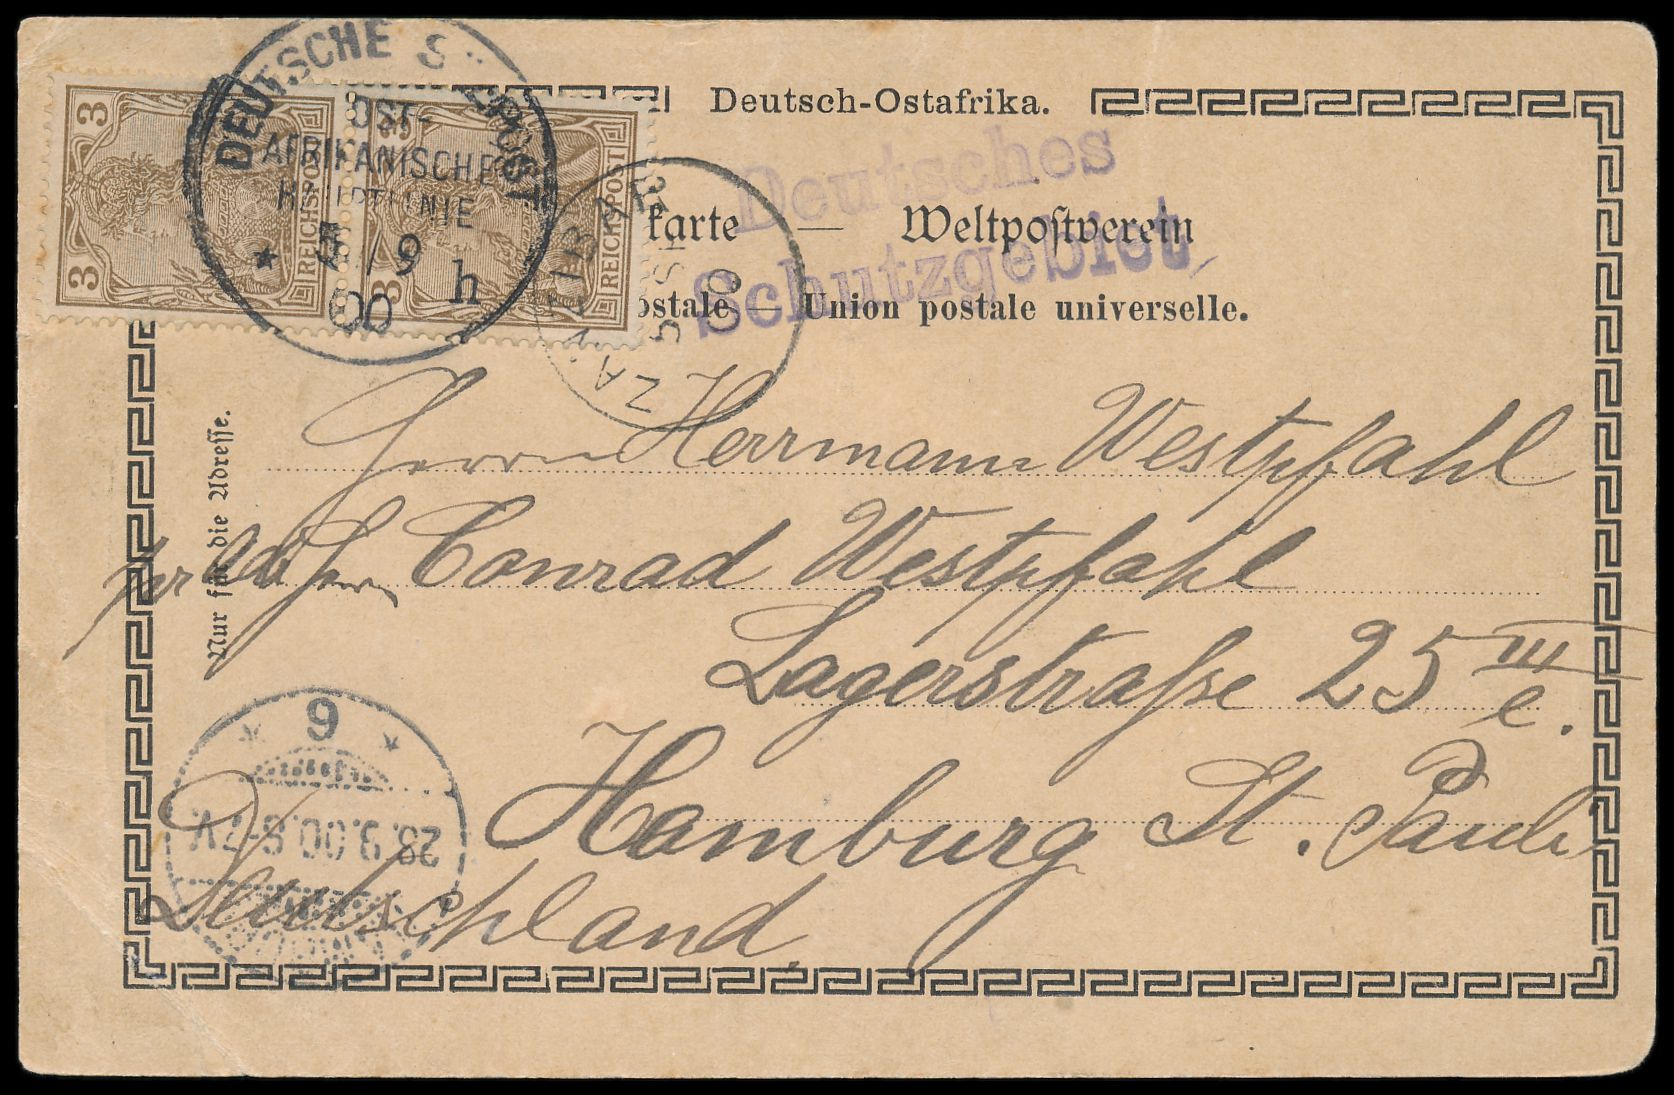 Deutsch-Ostafrika.
karte — Weltpostverein
ostale — Union postale universelle.
Deutsches
Schutzgebiet
3 REICHSPOST 3
3 REICHSPOST 3
DEUTSCHE S POST
OST-
AFRIKANISCHE
HAUPTLINIE
* 5/9 h
00
ZANZIBAR
SP 5
00
Nur für die Adresse.
Herrn Herrmann Westpfahl
per Herrn Conrad Westpfahl
Lagerstraße 25 III e.
Hamburg St. Pauli
Deutschland.
* 9 *
28.9.00.6-7V.